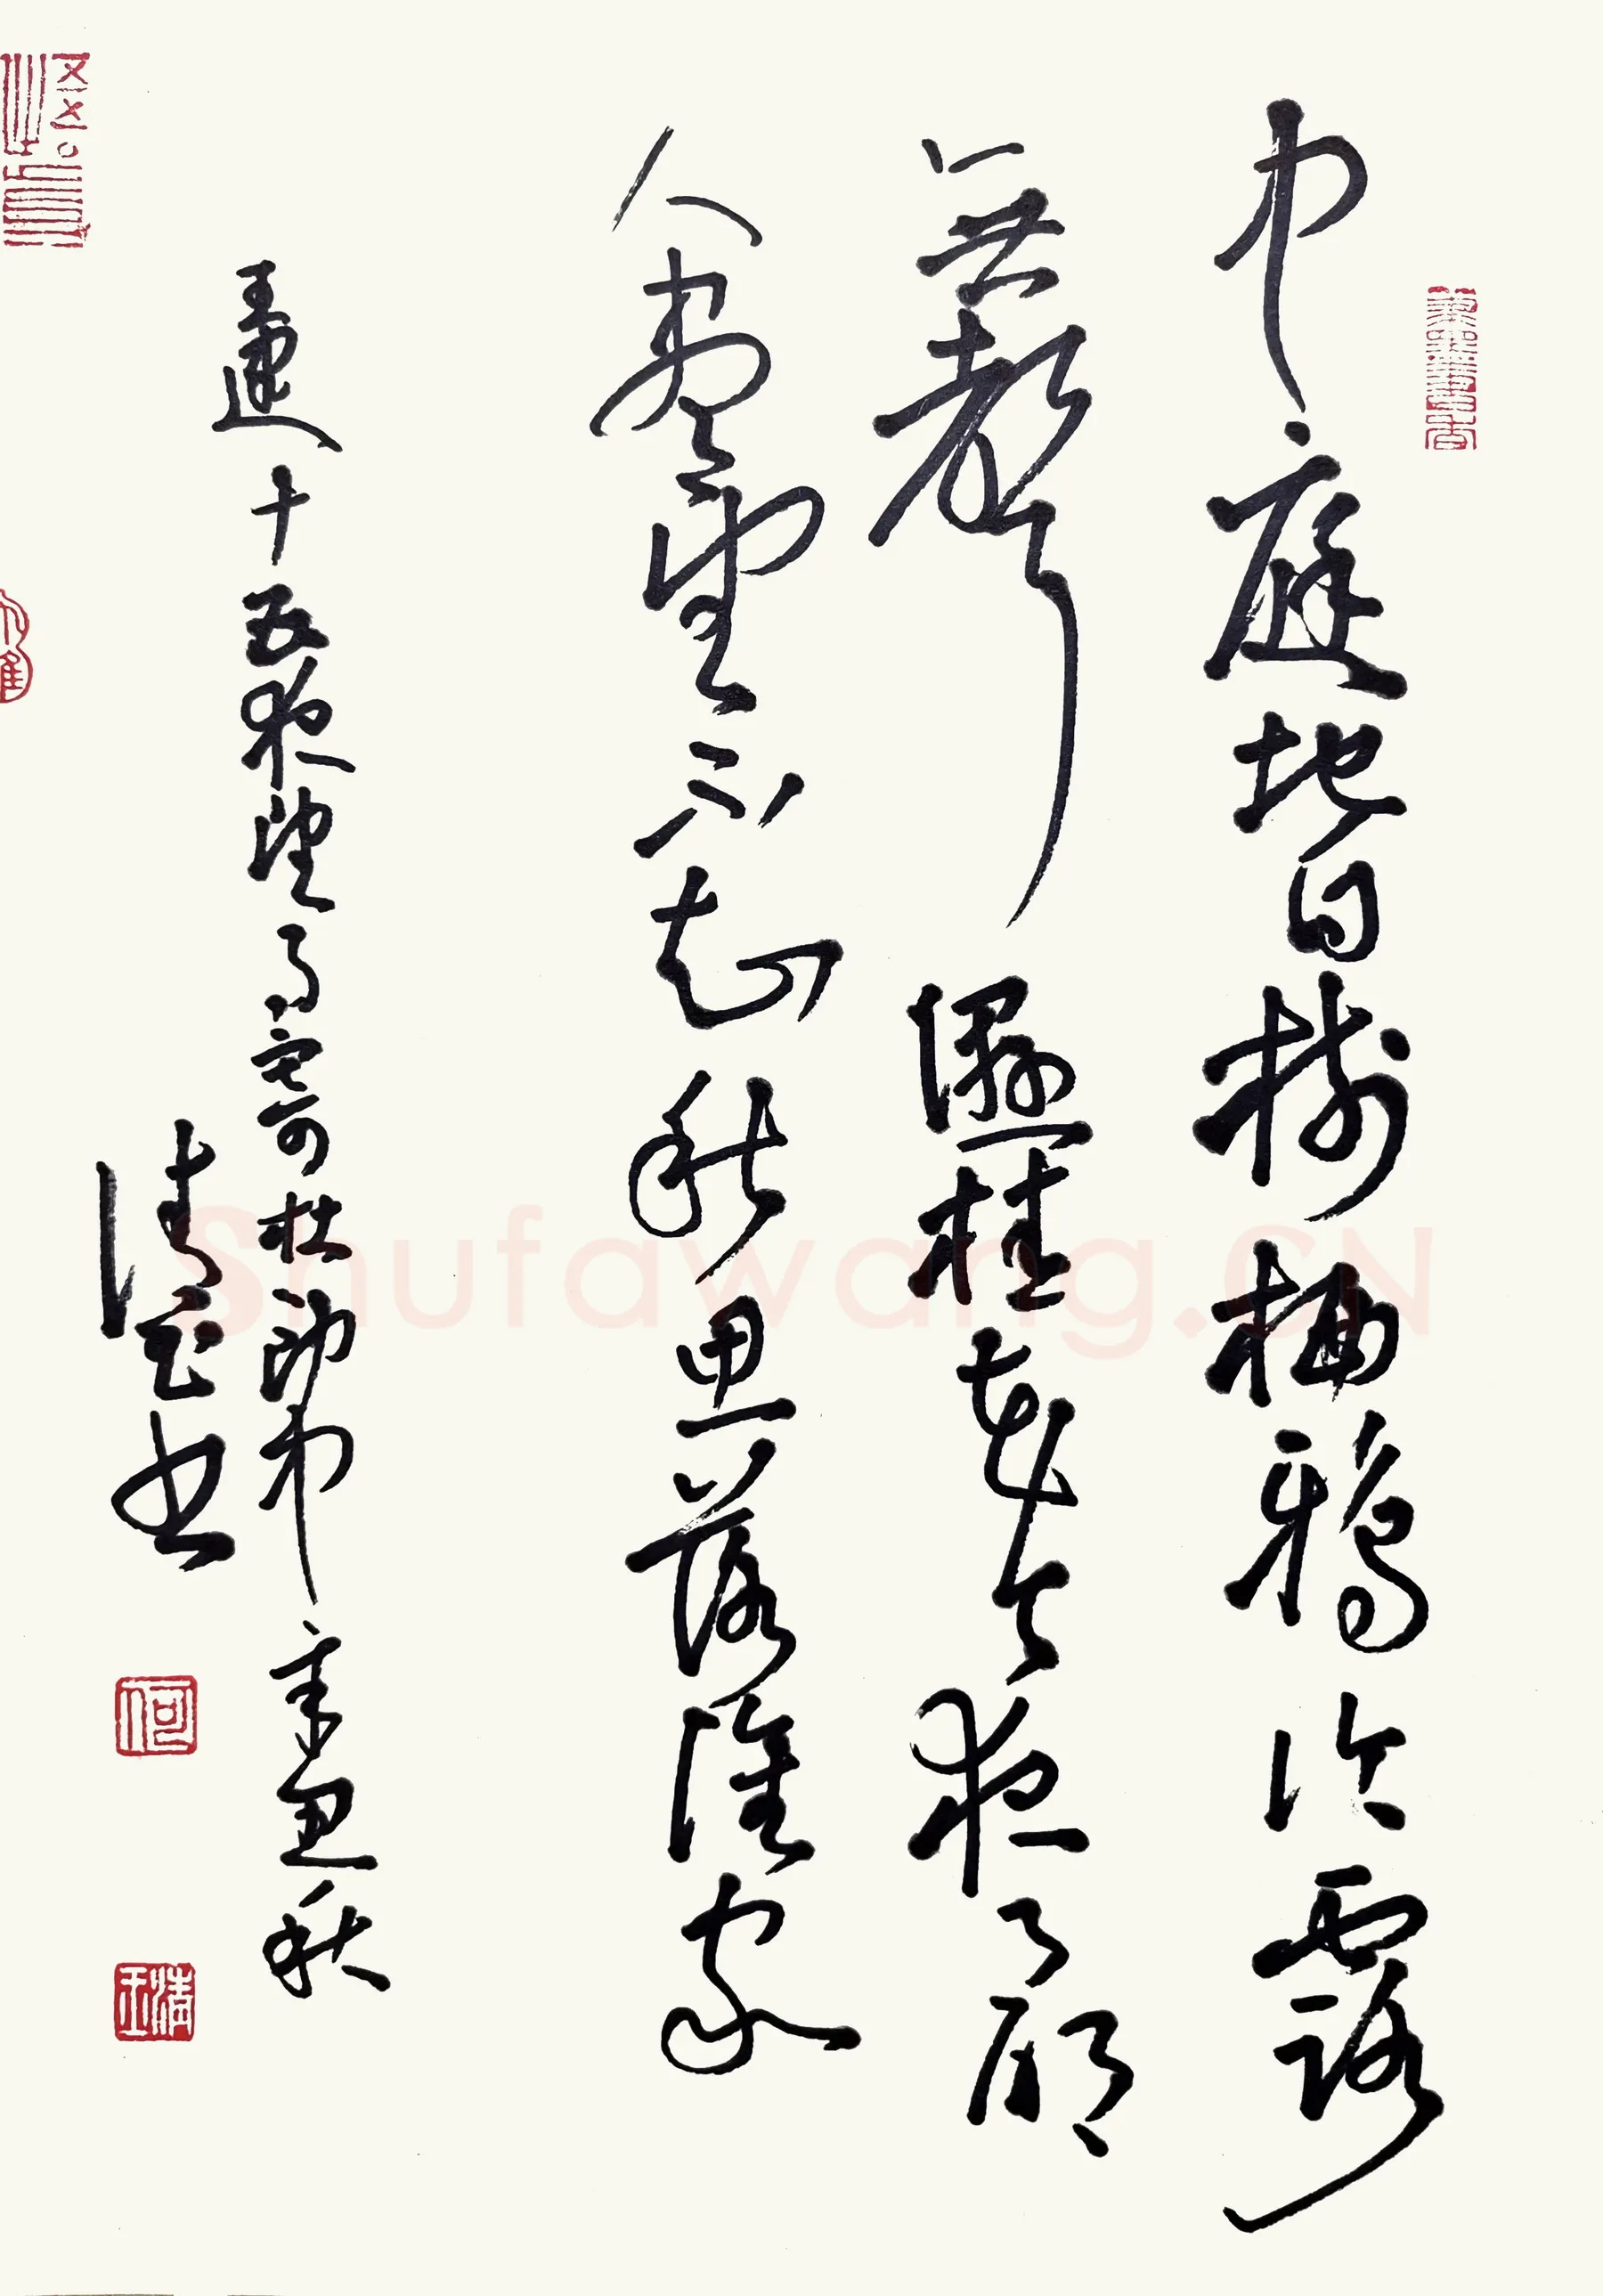 中庭地白樹栖鴉冷露
無聲濕桂花今夜月明
人盡望不知秋思落誰家
王建十五夜望月寄杜郎中 辛丑秋
清玉书
何
清玉
Shufawang.CN